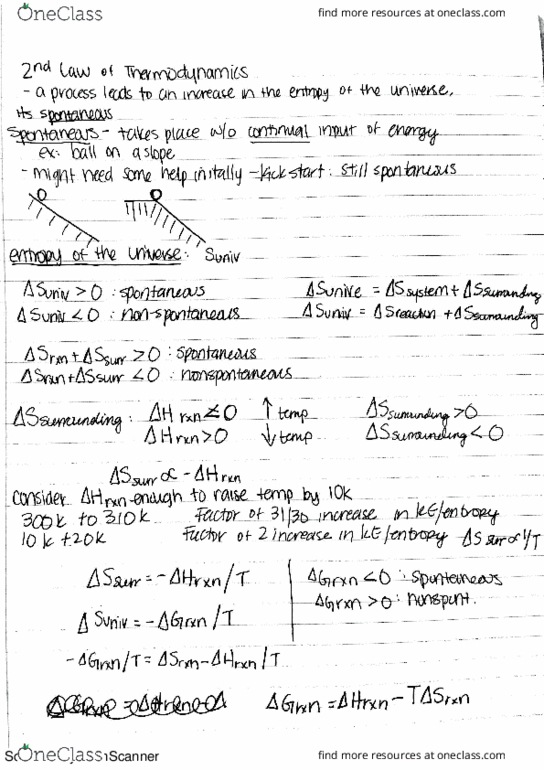 OneClass
find more resources at oneclass.com
2nd Law of Thermodynamics
- a process leads to an increase in the entropy of the universe,
its spontaneous
Spontaneous - takes place w/o continual input of energy
ex: ball on a slope
- might need some help initally - kick start : still spontaneous
entropy of the universe: Suniv
ΔSuniv > 0 : spontaneous
ΔSunive = ΔSsystem + ΔSsurrounding
ΔSuniv < 0 : non-spontaneous
ΔSuniv = ΔSreaction + ΔSsurrounding
ΔSrxn + ΔSsurr > 0 : spontaneous
ΔSrxn + ΔSsurr < 0 : nonspontaneous
ΔSsurrounding : ΔHrxn < 0 ↑ temp ΔSsurrounding > 0
ΔHrxn > 0 ↓ temp ΔSsurrounding < 0
ΔSsurr ∝ - ΔHrxn
consider ΔHrxn enough to raise temp by 10k
300k to 310k Factor of 31/30 increase in kE/entropy
10k t 20k Factor of 2 increase in kE/entropy ΔSsurr ∝ 1/T
ΔSsurr = -ΔHrxn/T
ΔGrxn < 0 : spontaneous
ΔGrxn > 0 : nonspont.
ΔSuniv = -ΔGrxn/T
-ΔGrxn/T = ΔSrxn - ΔHrxn/T
ΔGrxn = ΔHrxn - TΔSrxn
OneClass
Scanner
find more resources at oneclass.com